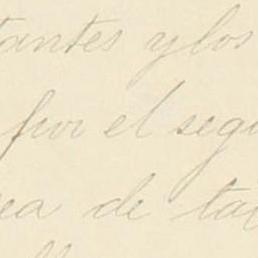 tantes y los
por el segu
ea de ta